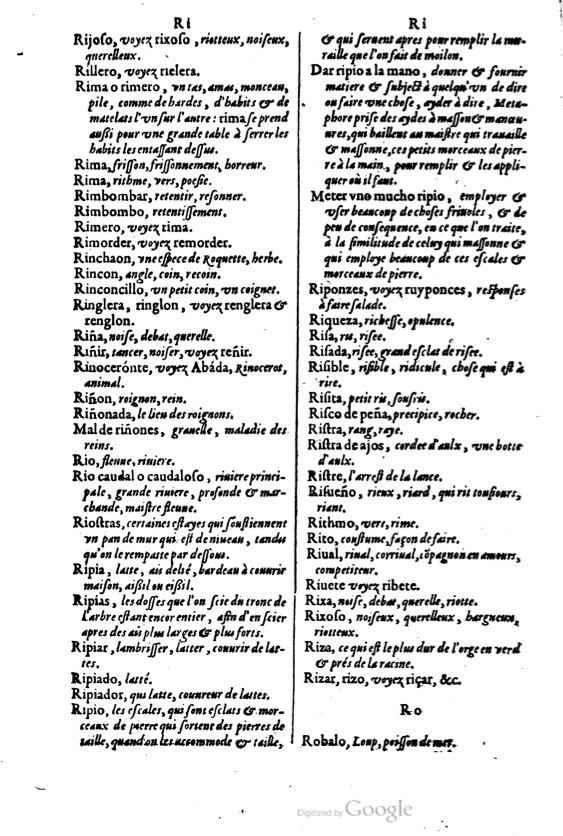 Ri
Rijoſo, voyez rixoſo, riotteux, noiſeux,
querelleux.
Rillero, voyez rielera.
Rima o rimero, vn tas, amas, monceau,
pile, comme de hardes, d'habits & de
matelats l'vn ſur l'autre: rima ſe prend
auſſi pour vne grande table à ſerrer les
habits les entaſſant deſſus.
Rima, friſſon, friſſonnement, horreur.
Rima, rithme, vers, poeſie.
Rimbombar, retentir, reſonner.
Rimbombo, retentiſſement.
Rimero, voyez rima.
Rimorder, voyez remorder.
Rinchaon, vne eſpece de Roquette, herbe.
Rincon, angle, coin, recoin.
Rinconcillo, vn petit coin, vn coignet.
Ringlera, ringlon, voyez renglera &
renglon.
Riña, noiſe, debat, querelle.
Riñir, tancer, noiſer, voyez reñir.
Rinocerónte, voyez Abáda, Rinocerot,
animal.
Riñon, roignon, rein.
Riñonada, le lieu des roignons.
Mal de riñones, grauelle, maladie des
reins.
Rio, fleuue, riuiere.
Rio caudal o caudaloſo, riuiere princi-
pale, grande riuiere, profonde & mar-
chande, maiſtre fleuue.
Rioſtras, certaines eſtayes qui ſouſtiennent
vn pan de mur qui eſt de niueau, tandis
qu'on le rempaſte par deſſous.
Ripia, latte, ais delié, bardeau à couurir
maiſon, aiſſil ou eiſſil.
Ripias, les doſſes que l'on ſcie du tronc de
l'arbre eſtant encor entier, afin d'en ſcier
apres des ais plus larges & plus forts.
Ripiar, lambriſſer, latter, couurir de lat-
tes.
Ripiado, latté.
Ripiador, qui latte, couureur de lattes.
Ripio, les eſcales, qui ſont eſclats & mor-
ceaux de pierre qui ſortent des pierres de
taille, quand on les accommode & taille,
Ri
& qui ſeruent apres pour remplir la mu-
raille que l'on fait de moilon.
Dar ripio a la mano, donner & fournir
matiere & ſubject à quelqu'vn de dire
ou faire vne choſe, ayder à dire, Meta-
phore priſe des aydes à maſſon & manœu-
ures, qui baillent au maiſtre qui trauaille
& maſſonne, ces petits morceaux de pier-
re à la main, pour remplir & les appli-
quer où il faut.
Meter vno mucho ripio, employer &
vſer beaucoup de choſes friuoles, & de
peu de conſequence, en ce que l'on traite,
à la ſimilitude de celuy qui maſſonne &
qui employe beaucoup de ces eſcales &
morceaux de pierre.
Riponzes, voyez ruyponces, reſponſes
à faire ſalade.
Riqueza, richeſſe, opulence.
Riſa, ris, riſee.
Riſada, riſee, grand eſclat de riſee.
Riſible, riſible, ridicule, choſe qui eſt à
rire.
Riſita, petit ris, ſouſris.
Riſco de peña, precipice, rocher.
Riſtra, rang, raye.
Riſtra de ajos, cordee d'aulx, vne botte
d'aulx.
Riſtre, l'arreſt de la lance.
Riſueño, rieux, riard, qui rit touſiours,
riant.
Rithmo, vers, rime.
Rito, couſtume, façon de faire.
Riual, riual, corriual, cõpagnon en amours,
competiteur.
Riuete voyez ribete.
Rixa, noiſe, debat, querelle, riotte.
Rixoſo, noiſeux, querelleux, hargneux,
riotteux.
Riza, ce qui eſt le plus dur de l'orge en verd
& prés de la racine.
Rizar, rizo, voyez riçar, &c.
Ro
Robalo, Loup, poiſſon de mer.
Digitized by Google